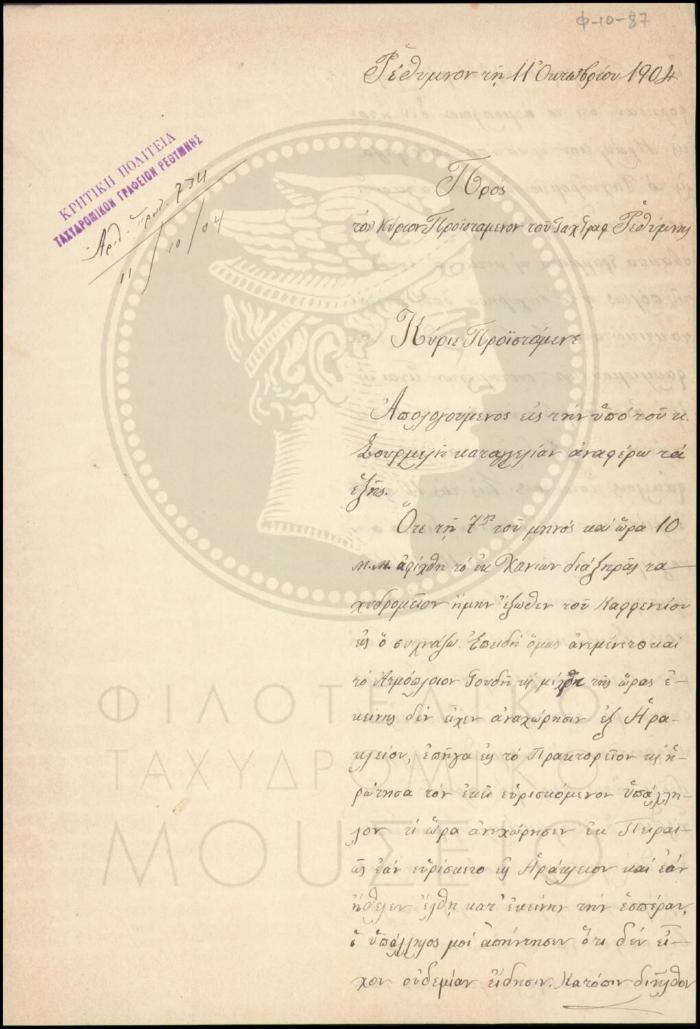 Φ-10-87
Ῥέθυμνον τῇ 11 Ὀκτωβρίου 1904
ΚΡΗΤΙΚΗ ΠΟΛΙΤΕΙΑ
ΤΑΧΥΔΡΟΜΙΚΟΝ ΓΡΑΦΕΙΟΝ ΡΕΘΥΜΝΗΣ
Ἀριθ. Πρωτ. 734
11/10/04
Πρὸς
τὸν Κύριον Προϊστάμενον τοῦ Ταχ Γραφ Ῥεθύμνης
Κύριε Προϊστάμενε
Ἀπολογούμενος εἰς τὴν ὑπὸ τοῦ κ.
καταγγελίαν ἀναφέρω τὰ
ἑξῆς.
Ὅτι τῇ 7ῃ τοῦ μηνὸς καὶ ὥρα 10
μ.μ. ἀφίχθη τὸ ἐκ Χανίων διὰ ξηρᾶς τα-
χυδρομεῖον ἤμην ἔξωθεν τοῦ Καφφενείου
εἰς ὃ συχνάζω. Ἐπειδὴ ὅμως ἀνεμένετο καὶ
τὸ Ἀτμόπλοιον Γουδῆ κ μέχρι τῆς ὥρας ἐ-
κείνης δὲν εἶχεν ἀναχώρησιν ἐξ Ἡρα-
κλείου, ἐπῆγα εἰς τὸ Πρακτορεῖον κ ἠ-
ρώτησα τὸν ἐκεῖ εὑρισκόμενον ὑπάλλη-
λον τὶ ὥρα ἀνεχώρησεν ἐκ Πειραι-
ῶς ἐὰν εὑρίσκετο εἰς Ἡράκλειον καὶ ἐὰν
ἤθελεν ἔλθῃ κατ' ἐκείνην τὴν ἑσπέραν,
ὁ ὑπάλληλος μοὶ ἀπήντησεν ὅτι δὲν εἶ-
χον οὐδεμίαν εἴδησιν. Κατόπιν διῆλθον
ΦΙΛΟΤΕΛΙΚΟ
ΤΑΧΥΔΡΟΜΙΚΟ
ΜΟΥΣΕΙΟ